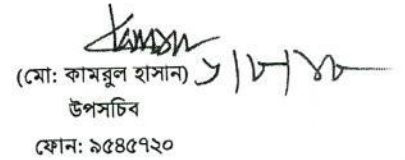 (মো: কামরুল হাসান) ১/৮/১৮
উপসচিব
ফোন: ৯৫৪৫৭২০